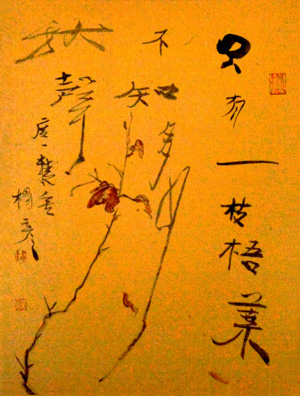 只有一枝梧葉
不知多少
秋聲